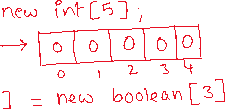 new int[5];
→ 0 0 0 0 0
0 1 2 3 4
] = new boolean[3]